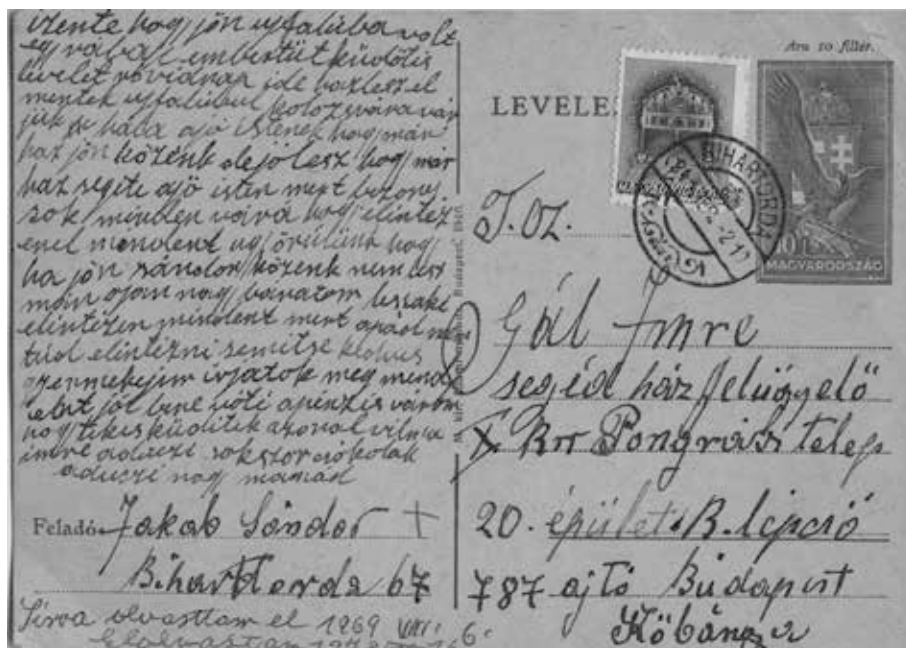 izente hogy jön ujfalúba volt
egy rabal embertüt küdötis
levelet rövidnap ide hazlesz el
mentek ujfalúbul kolozsvára vár
juk hála ajó istenek hogy már
haz jön közénk dejólesz hogy már
haz segite ajó isten mert bizony
sok minden várá hogy elintéz
enel mendent ugy örülünk hogy
ha jön sándor közénk nem lesz
mán ojan nag bánatom
elintézen mindent mert apád
túd elintézni semitse kedves
gyermekejim irjatok meg mind
jól apenzis várom
hogy tikis küditek azonal vilma
imre aduczi sokszor csókolak
aduczi nagy mamád
Feladó: Jakab Sándor +
Bihartorda 67
Sirva olvasttam el 1969 VIII. 6.
Elolvastam
Budapest.
Ára 10 fillér.
LEVELE
BIHARTORDA
MAGYARORSZÁG
T. oz.
Gál Imre
segéd házfelügyelő
X ker Pongrácz telep
20. épület B. lépcső
787 ajtó Búdapest
Kőbánya